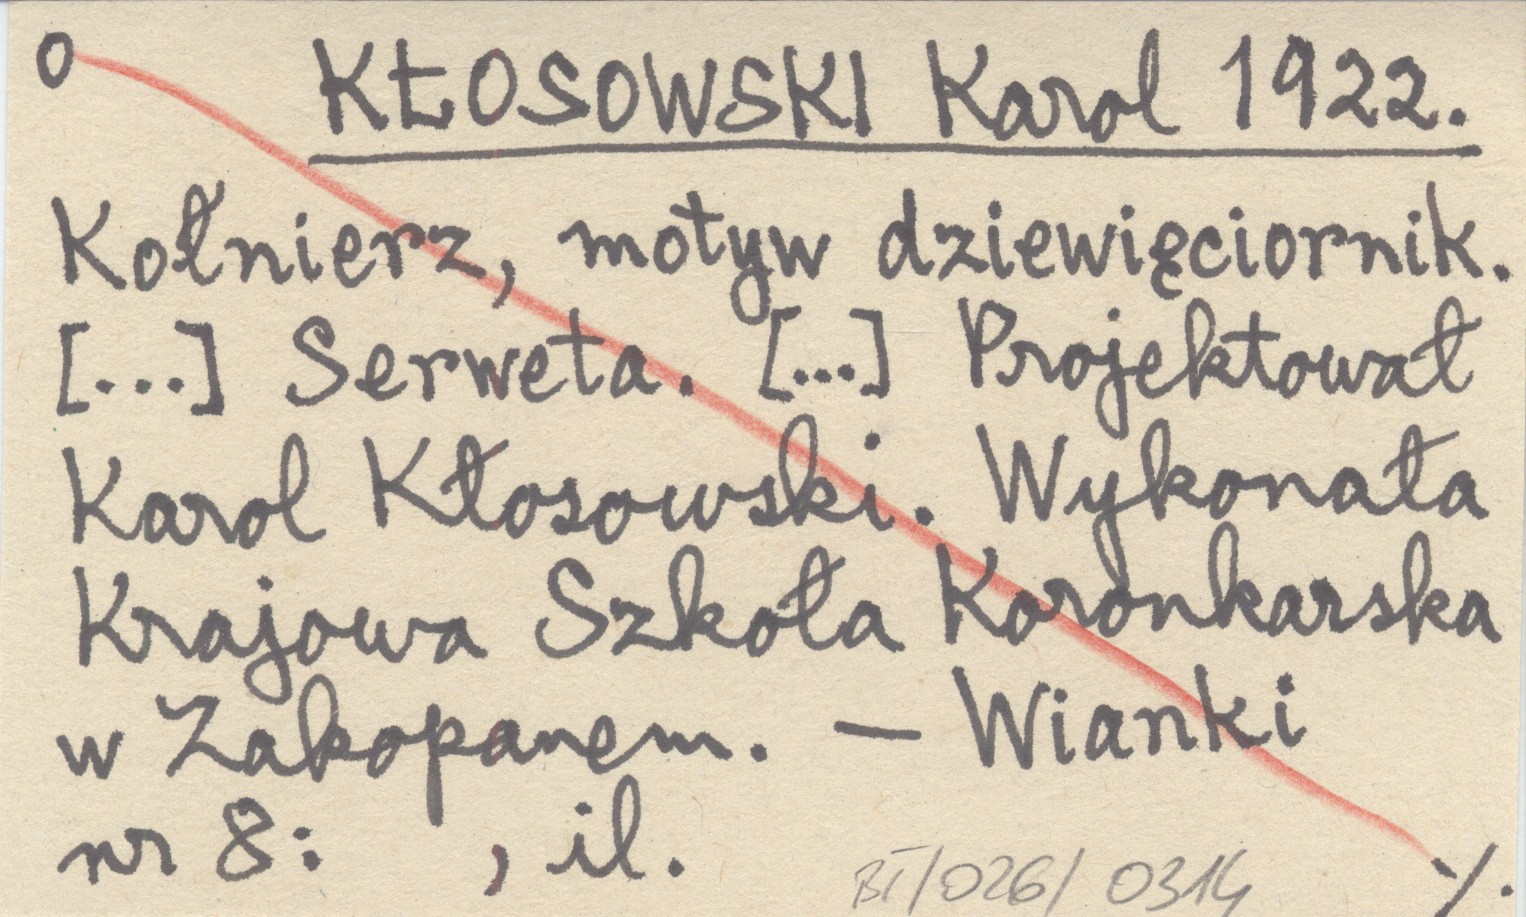 o KŁOSOWSKI Karol 1922.
Kołnierz, motyw dziewięciornik.
[...] Serweta. [...] Projektował
Karol Kłosowski. Wykonała
Krajowa Szkoła Koronkarska
w Zakopanem. — Wianki
nr 8: , il.
BT/026/0314 ·/.